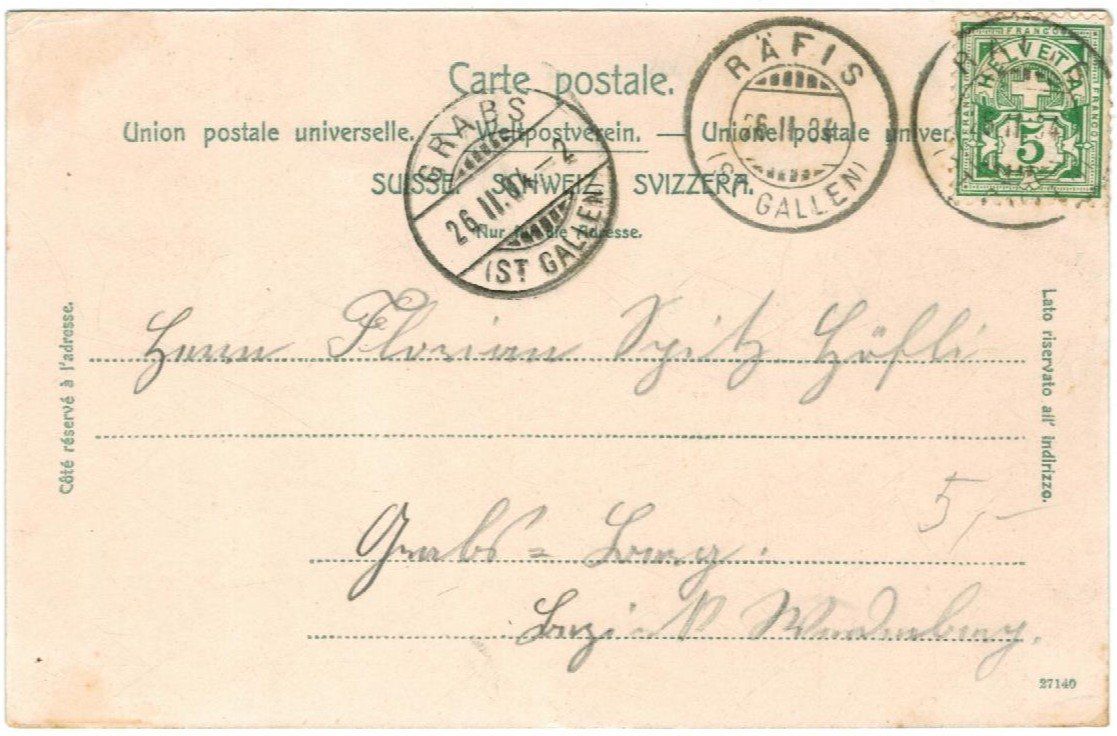 Carte postale.
Union postale universelle. — Weltpostverein. — Unione postale univer
SUISSE. SCHWEIZ. SVIZZERA.
Nur für die Adresse.
GRABS
26.II.04.–2
(ST GALLEN)
RÄFIS
26.II.04
(ST. GALLEN)
FRANCO
HELVETIA
5
Côté réservé à l'adresse.
Lato riservato all' indirizzo.
Herrn Florian Spitz Höfli
Grabs = Berg.
5,—
Bezirk Werdenberg.
27140